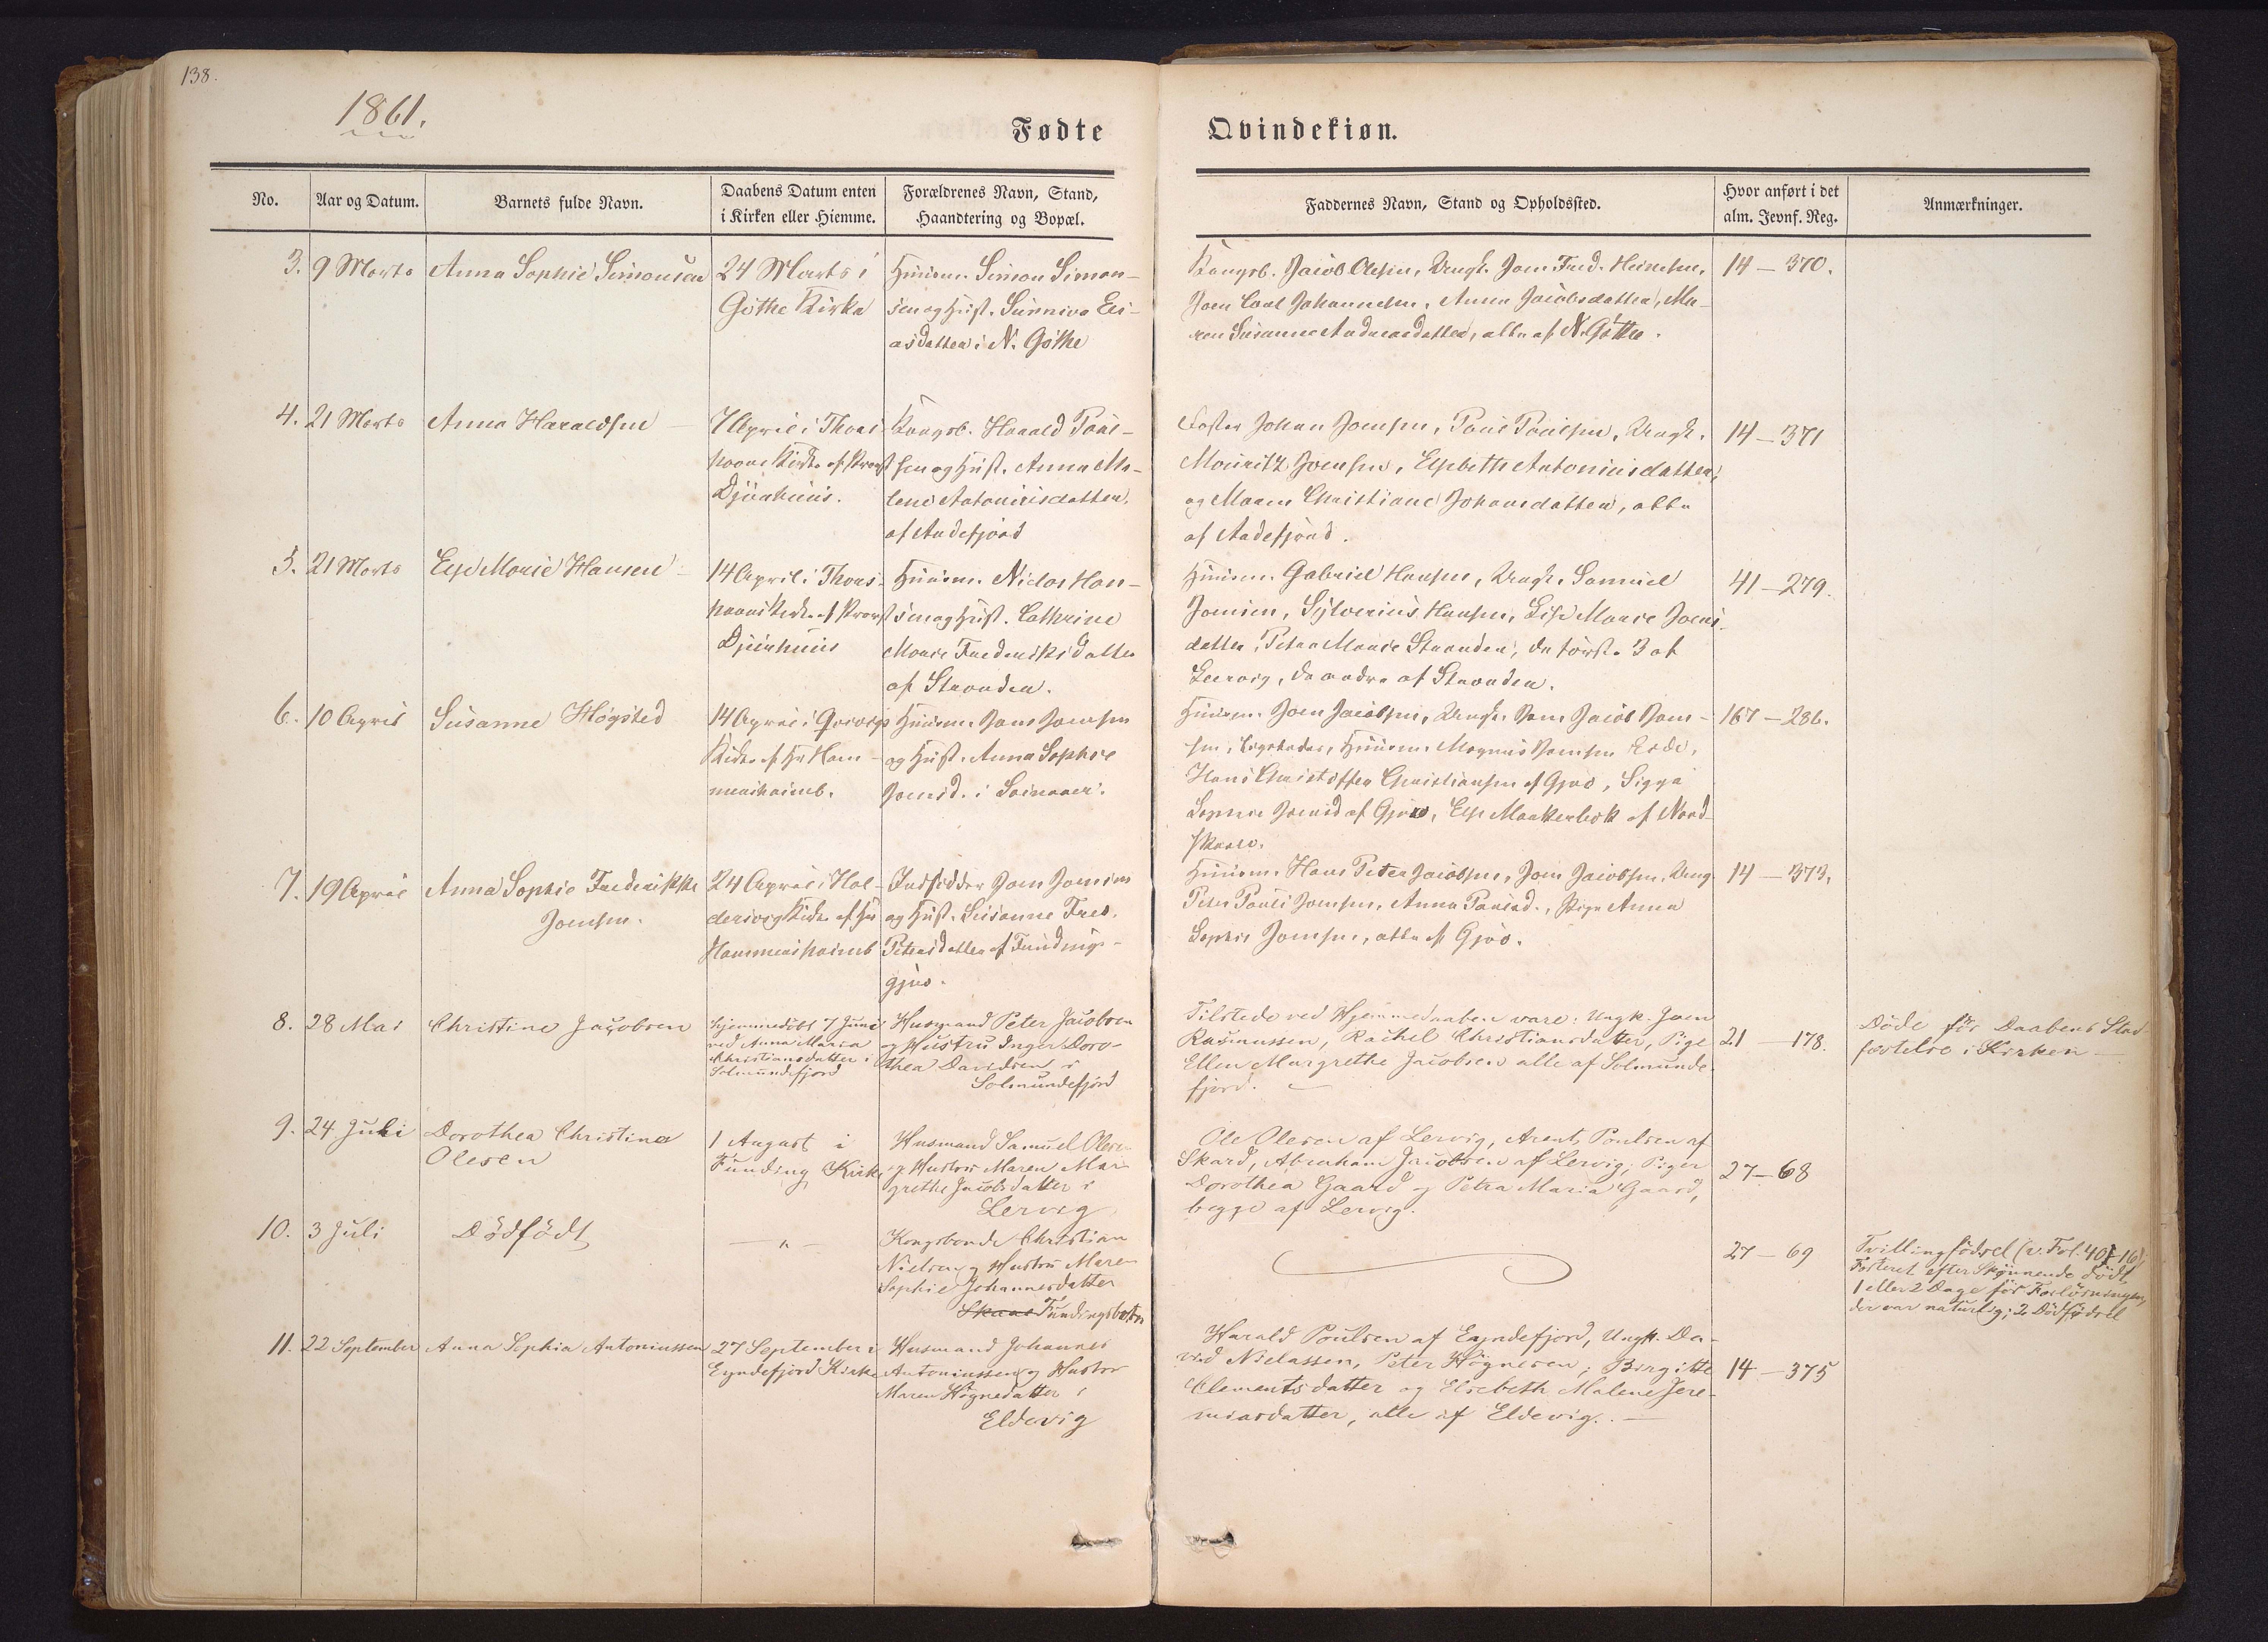 138.
1861.
Fødte
Qvindekiøn.
No.
Aar og Datum.
Barnets fulde Navn.
Daabens Datum enten
i Kirken eller Hiemme.
Forældrenes Navn, Stand,
Haandtering og Bopæl.
Faddernes Navn, Stand og Opholdssted.
Hvor anført i det
alm. Jevnf. Reg.
Anmærkninger.
3. 9 Marts
Anna Sophie Simonsen
24 Marts i
Göthe Kirke
Huusm. Simon Simon-
sen og Hust. Sunniva Eli-
asdatter i N. Göthe
Kongsb. Jacob Olesen, Ungk. Joen Fred. Heinesen,
Joen Carl Johannesen, Anna Jacobsdatter, Ma-
ren Susanne Andreasdatter, alle af N. Göthe.
14 - 370.
4. 21 Marts
Anna Haraldsen
7 April i Thors-
havns Kirke af Provst
Djurhuus.
Kongsb. Harald Poul-
sen og Hust. Anna Ma-
lene Antoniusdatter
af Andefjord
Johan Joensen, Poul Poulsen, Ungk.
Mouritz Joensen, Elsbeth Antoniusdatter,
og Maren Christiane Johansdatter, alle
af Andefjord.
14 - 371
5. 21 Marts
Else Marie Hansen
14 April i Thors-
havns Kirke af Provst
Djurhuus
Huusm. Niclas Han-
sen og Hust. Cathrine
Marie Frederiksdatter
af Stranden.
Huusm. Gabriel Hansen, Ungk. Samuel
Joensen, Sylverius Hansen, Else Marie Joens-
datter, Petra Marie Stranden, de først. 3 af
Leervig, de andre af Stranden.
41 - 279.
6. 10 April
Susanne Høgsted
14 April i Qvivigs
Kirke af Hr Ham-
mershaimb.
Huusm. Joen Joensen
og Hust. Anna Sophie
Joensd. i
Huusm. Joen Jacobsen, Ungk. Joen Jacob Joen-
sen, Huusm. Magnus Joensen Eide,
Hans Christoffer Christiansen af Gjov, Sigga
Joensd. af Gjov, Else af Nord-
skaale.
167 - 286.
7. 19 April
Anna Sophie Frederikke
Joensen.
24 April i Hal-
dersvig Kirke af Hr
Hammershaimb
Indsidder Joen Joensen
og Hust. Susanne Fred.
Petersdatter af Fundings-
gjov.
Huusm. Hans Peter Jacobsen, Joen Jacobsen, Ung.
Peter Pauli Joensen, Anna Poulsd., Pige Anna
Sophie Joensen, alle af Gjov.
14 - 373.
8. 28 Mai
Christine Jacobsen
hjemmedöbt 7 Juni
ved Anna Maria
Christiansdatter i
Solmundefjord
Husmand Peter Jacobsen
og Hustru Inger Doro-
thea Davidsen i
Solmundefjord
Tilstede ved Hjemmedaaben vare: Ungk. Joen
Rasmussen, Rachel Christiansdatter, Pige
Ellen Margrethe Jacobsen alle af Solmunde-
fjord.
21 - 178.
Döde för Daabens Stad-
fæstelse i Kirken
9. 24 Juli
Dorothea Christina
Olesen
1 August i
Funding Kirke
Husmand Samuel Olesen
og Hustru Maren Mar-
grethe Jacobsdatter i
Lervig
Ole Olesen af Lervig, Arent Poulsen af
Skard, Abraham Jacobsen af Lervig; Piger
Dorothea Gaard og Petra Maria Gaard,
begge af Lervig.
27 - 68
10. 3 Juli
Dödfödt
- " -
Kongsbonde Christian
Nielsen og Hustru Maren
Sophie Johannesdatter
Skaal Fundingsbotn
27 - 69
Tvillingfödsel (v. Fol. 40 - 16);
Fosteret efter Skjönnende dödt
1 eller 2 Dage för Forlösningen,
der var naturlig; 2 Dödfödsel
11. 22 September
Anna Sophia Antoniussen
27 September i
Eyndefjord Kirke
Husmand Johannes
Antoniussen og Hustru
Maren Högnedatter i
Eldevig
Harald Poulsen af Eyndefjord, Ungk. Da-
vid Nielassen, Peter Högnesen; Birgitte
Clementsdatter og Elsebeth Malene Jere-
miasdatter, alle af Eldevig.
14 - 375